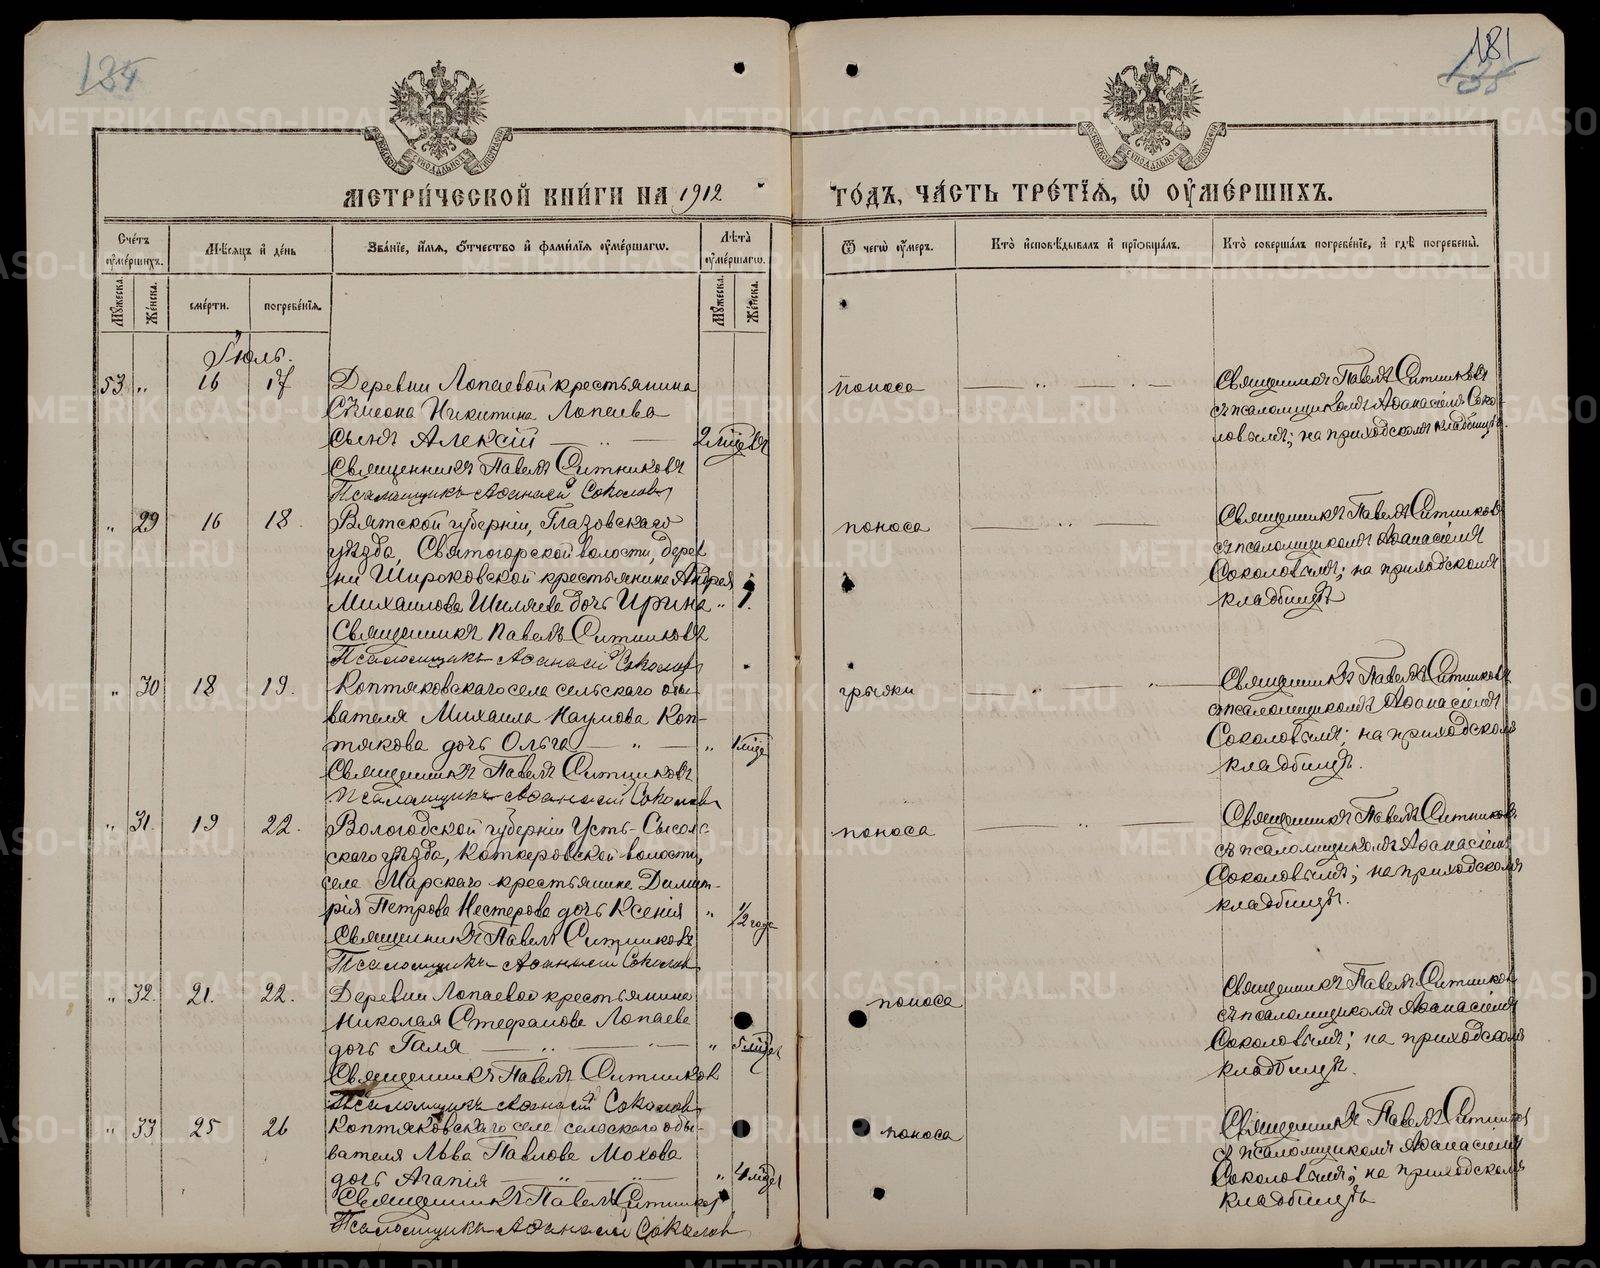 181
МЕТРИ́ЧЕСКОЙ КНИ́ГИ НА 1912
ГО́ДЪ, ЧА́СТЬ ТРЕ́ТІѦ, Ѿ ОУ҆МЕ́РШИХЪ.
Сче́тъ оу҆ме́ршихъ.
Мѣ́сяцъ и҆ де́нь
Зва́нїе, и҆́мѧ, ѻ҆́тчество и҆ фами́лїѧ оу҆ме́ршагѡ.
Лѣ́та оу҆ме́ршагѡ.
Ѿ чегѡ̀ оу҆́меръ.
Кто̀ и҆сповѣ́дывалъ и҆ прїѡбща́лъ.
Кто̀ соверша́лъ погребе́нїе, и҆ гдѣ̀ погребены̀.
Мꙋ́жеска.
Же́нска.
сме́рти.
погребе́нїѧ.
Мꙋ́жеска.
Же́нска.
Іюль.
53 „ 16 17 Деревни Лопаевой крестьянина
Сѵмеона Никитина Лопаева
сынъ Алексій — „ — 2 мѣсц
Священникъ Павелъ Ситниковъ
Псаломщикъ Аѳанасій Соколовъ
поноса — „ —
Священникъ Павелъ Ситниковъ
съ псаломщикомъ Аѳанасіемъ Соко-
ловымъ; на приходскомъ кладбищѣ.
„ 29 16 18. Вятской губерніи, Глазовскаго
уѣзда, Святогорской волости, дерев
ни Широковской крестьянина Андрея
Михаилова Шиляева дочь Ирина „ 1.
Священникъ Павелъ Ситниковъ
Псаломщикъ Аѳанасій Соколовъ
поноса — „ —
Священникъ Павелъ Ситниковъ
съ псаломщикомъ Аѳанасіемъ
Соколовымъ; на приходскомъ
кладбищѣ
„ 30 18 19. Коптяковскаго села сельскаго обы-
вателя Михаила Наумова Коп-
тякова дочь Ольга — „ — „ 1 мѣсц
Священникъ Павелъ Ситниковъ
Псаломщикъ Аѳанасій Соколовъ
грыжи — „ —
Священникъ Павелъ Ситниковъ
съ псаломщикомъ Аѳанасіемъ
Соколовымъ; на приходскомъ
кладбищѣ.
„ 31. 19 22. Вологодской губерніи Усть-Сысоль
скаго уѣзда, волости,
села крестьянина Димит-
рія Петрова Нестерова дочь Ксенія „ 1/2 года
Священникъ Павелъ Ситниковъ
Псаломщикъ Аѳанасій Соколовъ
поноса — „ —
Священникъ Павелъ Ситниковъ
съ псаломщикомъ Аѳанасіемъ
Соколовымъ; на приходскомъ
кладбищѣ.
„ 32. 21. 22. Деревни Лопаевой крестьянина
Николая Стефанова Лопаева
дочь Галя — „ — „ 5 мѣсц
Священникъ Павелъ Ситников
Псаломщикъ Аѳанасій Соколовъ
поноса
Священникъ Павелъ Ситников
съ псаломщикомъ Аѳанасіемъ
Соколовымъ; на приходскомъ
кладбищѣ.
„ 33 25 26 Коптяковскаго села сельскаго обы-
вателя Льва Павлова Мохова
дочь Агапія — „ — „ 4 мѣсц
Священникъ Павелъ Ситников
Псаломщикъ Аѳанасій Соколов
поноса
Священникъ Павелъ Ситников
съ псаломщикомъ Аѳанасіемъ
Соколовымъ; на приходскомъ
кладбищѣ
METRIKI.GASO-URAL.RU